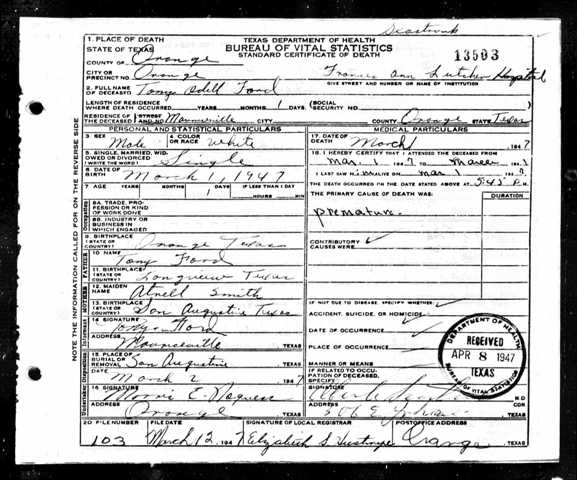 TEXAS DEPARTMENT OF HEALTH
BUREAU OF VITAL STATISTICS
STANDARD CERTIFICATE OF DEATH
13593
1. PLACE OF DEATH
STATE OF TEXAS
COUNTY OF Orange
CITY OR PRECINCT NO. Orange
Frances Ann Lutcher Hospital
GIVE STREET AND NUMBER OR NAME OF INSTITUTION
2. FULL NAME OF DECEASED Tony Odell Ford
LENGTH OF RESIDENCE WHERE DEATH OCCURRED YEARS MONTHS 1 DAYS (SOCIAL SECURITY NO.
RESIDENCE OF THE DECEASED STREET AND NO. Mauriceville CITY COUNTY Orange STATE Texas
PERSONAL AND STATISTICAL PARTICULARS
3. SEX Male 4. COLOR OR RACE White
5. SINGLE, MARRIED, WIDOWED OR DIVORCED (WRITE THE WORD) Single
6. DATE OF BIRTH March 1, 1947
7. AGE YEARS MONTHS DAYS 1 IF LESS THAN 1 DAY HOURS MIN
8A. TRADE, PROFESSION OR KIND OF WORK DONE
8B. INDUSTRY OR BUSINESS IN WHICH ENGAGED
9. BIRTHPLACE (STATE OR COUNTRY) Orange Texas
10. NAME Tony Ford
11. BIRTHPLACE (STATE OR COUNTRY) Longview Texas
12. MAIDEN NAME Smith
13. BIRTHPLACE (STATE OR COUNTRY) San Augustine Texas
14. SIGNATURE Tony Ford
ADDRESS Mauriceville TEXAS
15. PLACE OF BURIAL OR REMOVAL San Augustine TEXAS
DATE March 2 1947
16. SIGNATURE Morris C.
ADDRESS Orange TEXAS
MEDICAL PARTICULARS
17. DATE OF DEATH March 1 1947
18. I HEREBY CERTIFY THAT I ATTENDED THE DECEASED FROM
Mar. 1 1947 TO
I LAST SAW ALIVE ON Mar 1 194
THE DEATH OCCURRED ON THE DATE STATED ABOVE AT 5:45 P. M.
THE PRIMARY CAUSE OF DEATH WAS: DURATION
premature.
CONTRIBUTORY CAUSES WERE:
IF NOT DUE TO DISEASE, SPECIFY WHETHER:
ACCIDENT, SUICIDE, OR HOMICIDE
DATE OF OCCURRENCE
PLACE OF OCCURRENCE
MANNER OR MEANS
IF RELATED TO OCCUPATION OF DECEASED, SPECIFY
SIGNATURE M D
ADDRESS COR TEXAS
DEPARTMENT OF HEALTH
RECEIVED
APR 8 1947
TEXAS
BUREAU OF VITAL STATISTICS
20 FILE NUMBER FILE DATE SIGNATURE OF LOCAL REGISTRAR POSTOFFICE ADDRESS
103 March 12, 1947 Elizabeth S. Orange TEXAS
NOTE THE INFORMATION CALLED FOR ON THE REVERSE SIDE